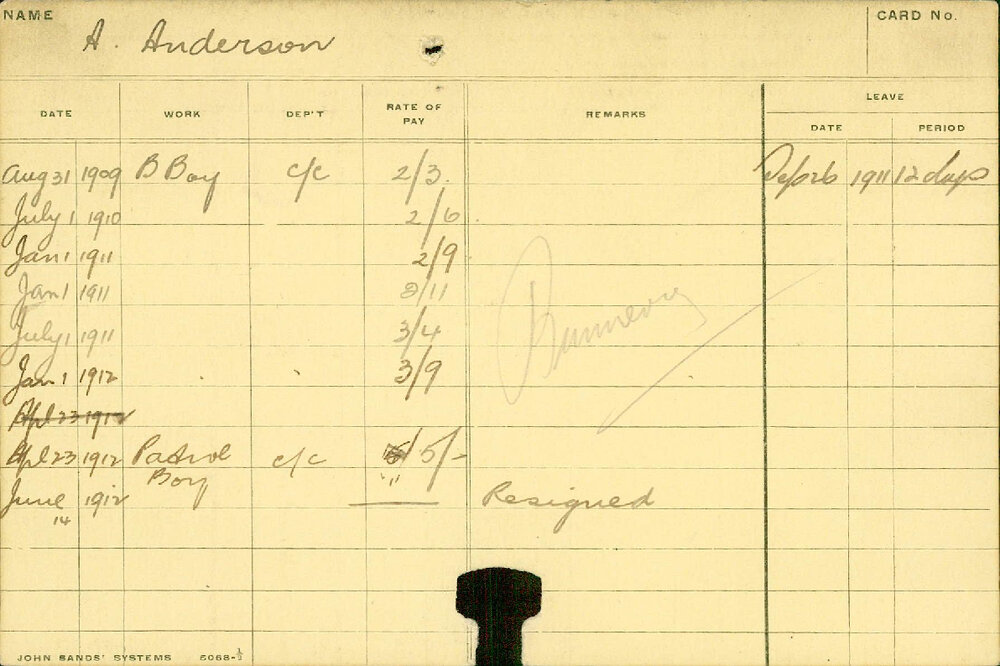 NAME A. Anderson CARD No.
DATE WORK DEP'T RATE OF PAY REMARKS LEAVE
DATE PERIOD
Aug 31 1909 B Boy c/c 2/3. Sep 26 1911 12 days
July 1 1910 2/6
Jan 1 1911 2/9
Jan 1 1911 2/11
July 1 1911 3/4
Jan 1 1912 3/9
Apl 23 1912
Apl 23 1912 Patrol Boy c/c 5/-
June 14 1912 Resigned
JOHN SANDS' SYSTEMS 6068-½